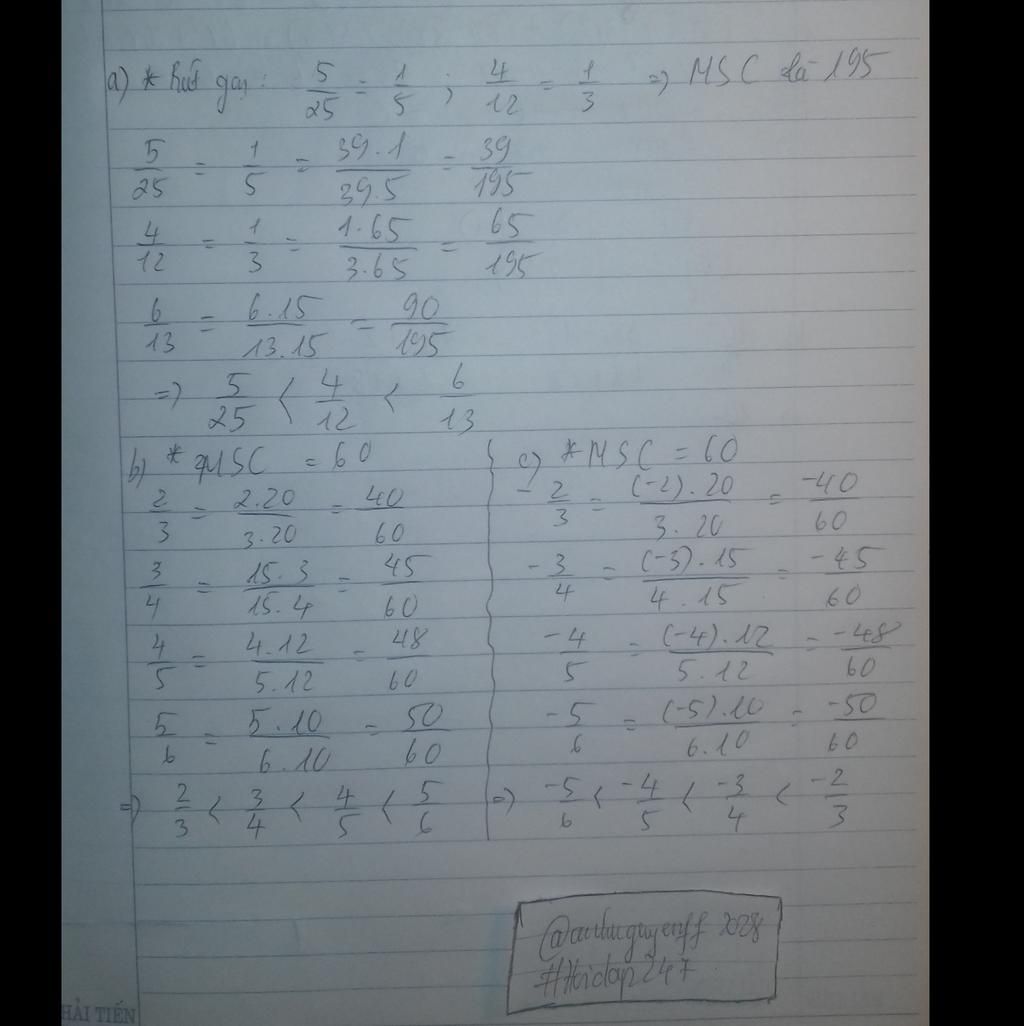 a) * Rút gọn: 5/25 = 1/5 ; 4/12 = 1/3 => MSC là 195
5/25 = 1/5 = 39.1/39.5 = 39/195
4/12 = 1/3 = 1.65/3.65 = 65/195
6/13 = 6.15/13.15 = 90/195
=> 5/25 < 4/12 < 6/13
b) * MSC = 60
2/3 = 2.20/3.20 = 40/60
3/4 = 15.3/15.4 = 45/60
4/5 = 4.12/5.12 = 48/60
5/6 = 5.10/6.10 = 50/60
=> 2/3 < 3/4 < 4/5 < 5/6
c) * MSC = 60
-2/3 = (-2).20/3.20 = -40/60
-3/4 = (-3).15/4.15 = -45/60
-4/5 = (-4).12/5.12 = -48/60
-5/6 = (-5).10/6.10 = -50/60
=> -5/6 < -4/5 < -3/4 < -2/3
#Hoidap247
HẢI TIẾN